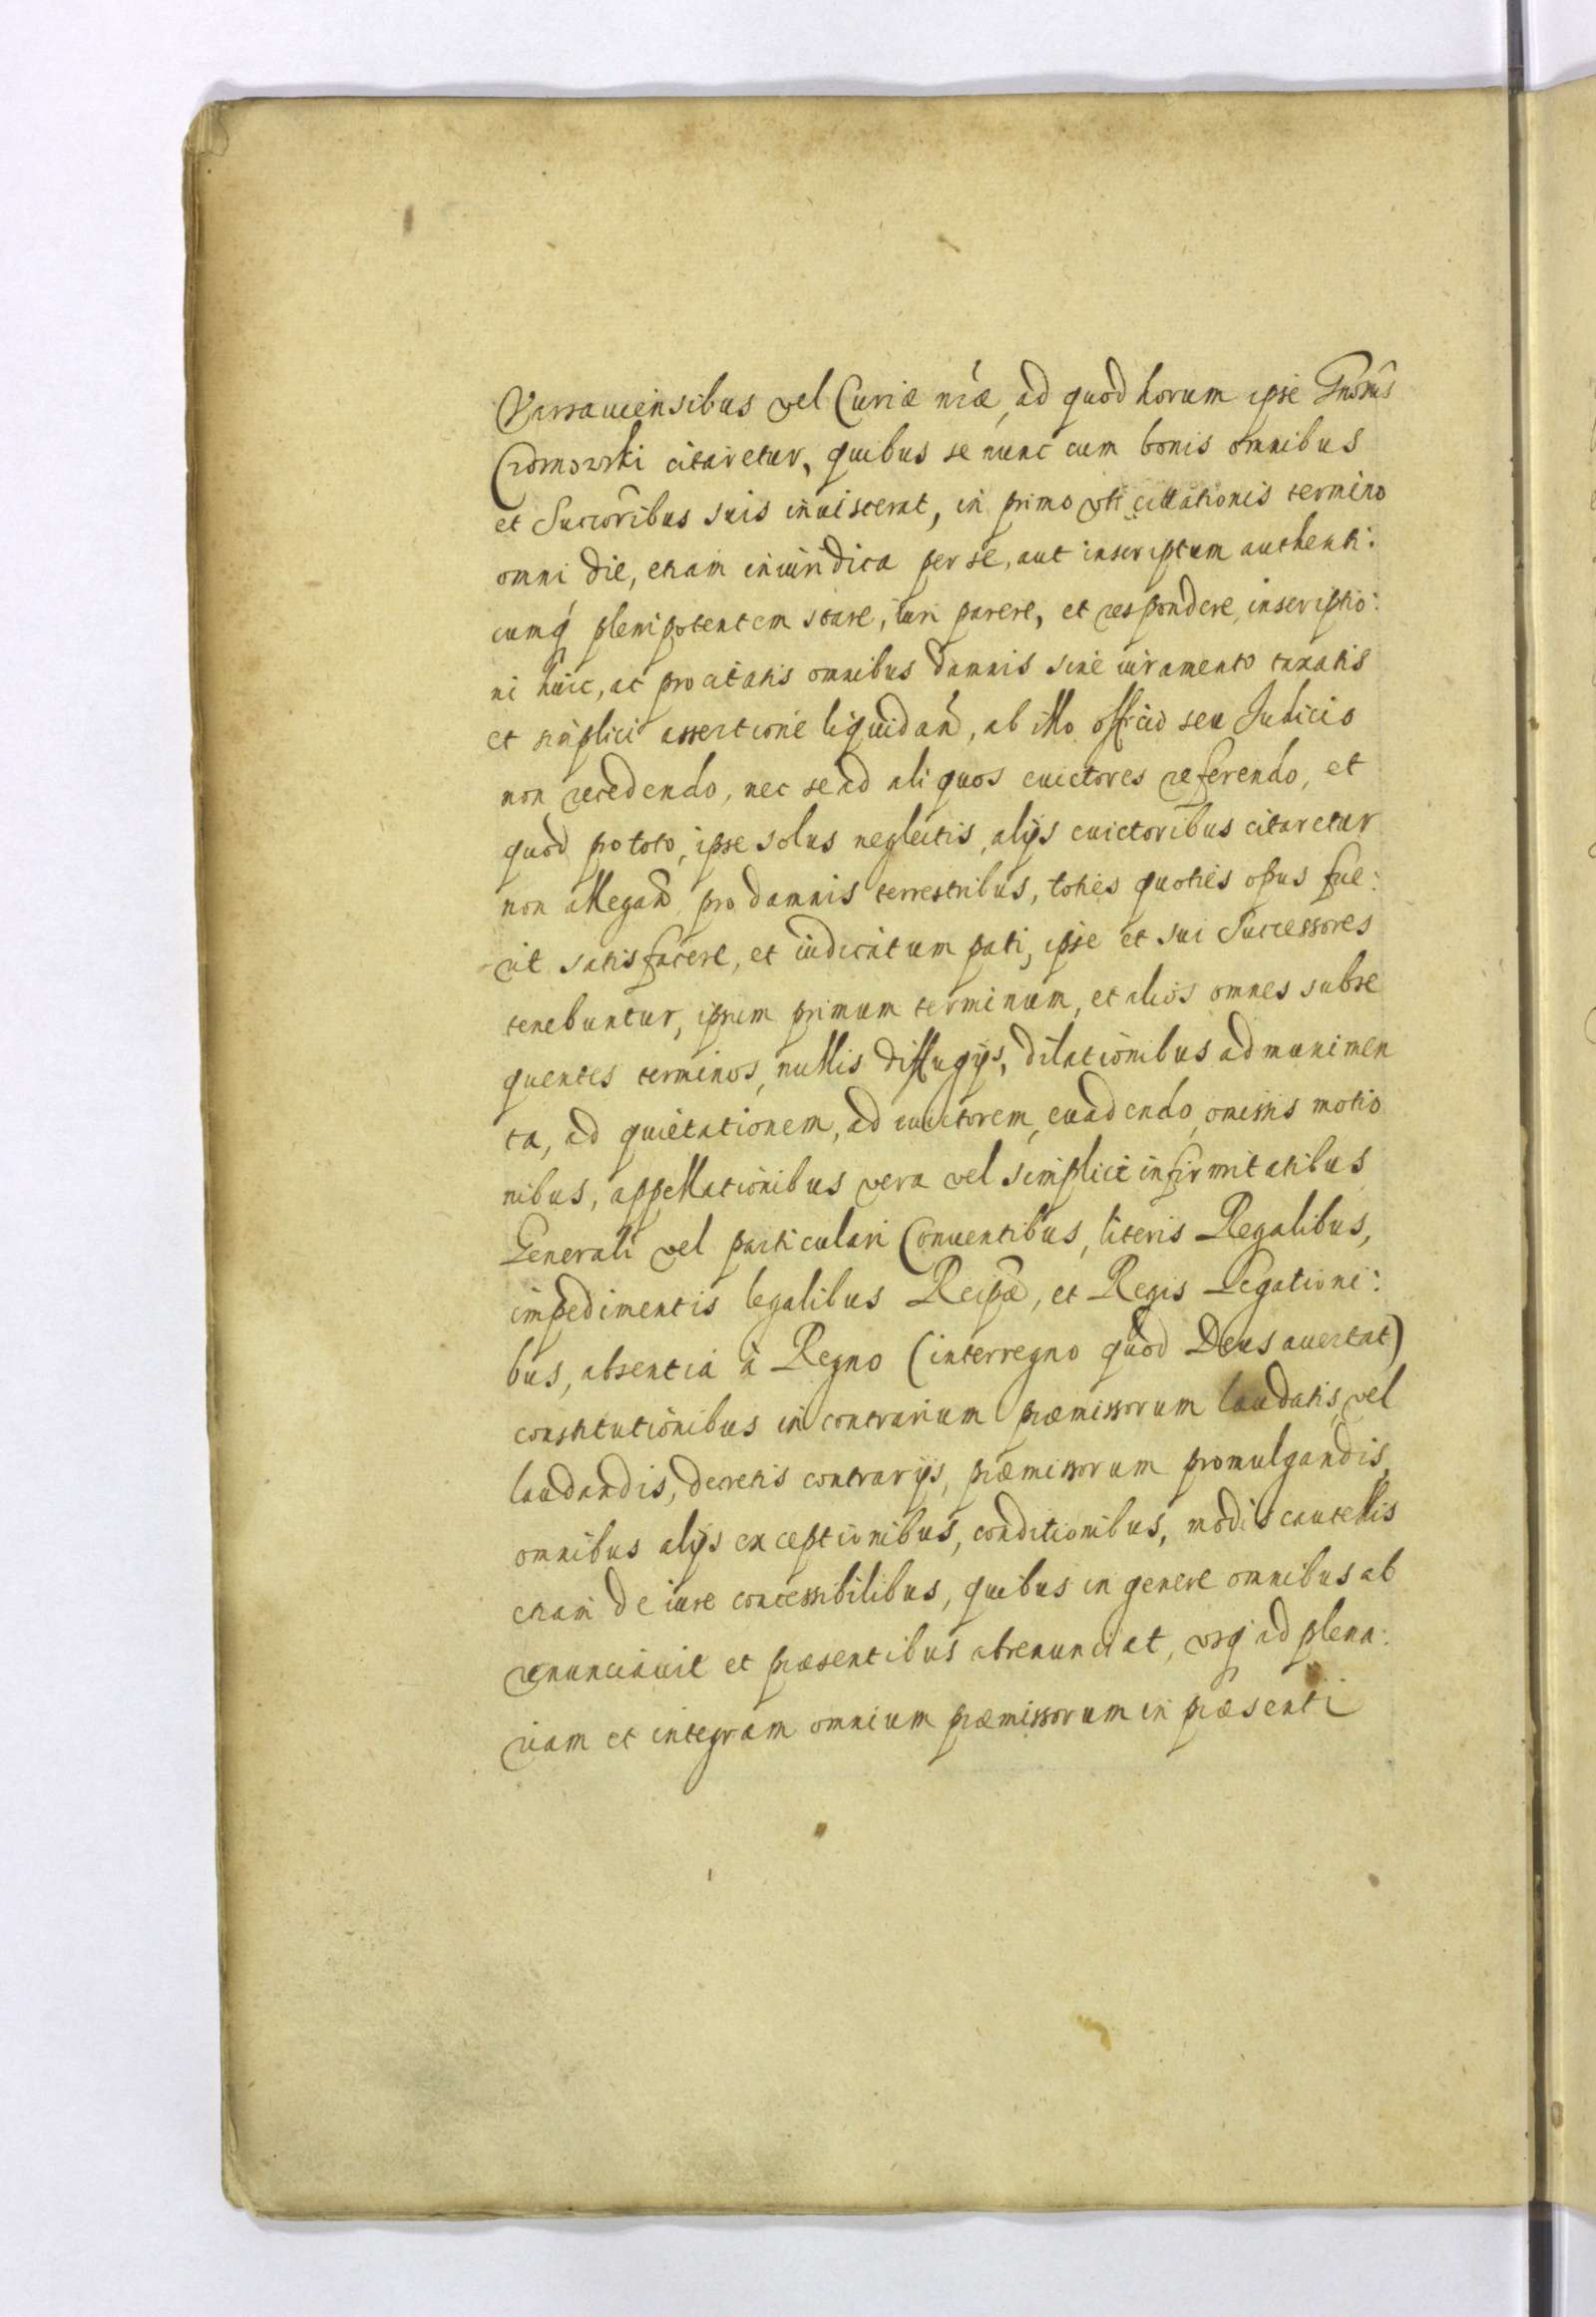 Varsauiensibus vel Curiæ nræ, ad quod horum ipse Gnosus
Czosnowski citaretur, quibus se nunc cum bonis omnibus
et Succoribus suis inuiscerat, in primo vti cittationis termino
omni die, etiam iniuridica per se, aut inscriptum authenti:
cumq́ plenipotentem stare, iuri parere, et respondere, inscriptio:
ni huic, ac pro citatis omnibus damnis sine iuramento taxatis
et simplici assertione liquidan̄, ab illo officio seu Iudicio
non recedendo, nec se ad aliquos euictores referendo, et
quod pro toto, ipse solus neglectis, alijs euictoribus citaretur
non allegan̄ pro damnis terrestribus, toties quoties opus fue:
rit satisfacere, et iudicatum pati, ipse et sui Successores
tenebuntur, ipsum primum terminum, et alios omnes subse
quentes terminos, nullis diffugijs, dilationibus ad munimen
ta, ad quietationem, ad euictorem, euadendo, omissis motio
nibus, appellationibus vera vel simplici infirmitatibus
Generali vel particulari Conuentibus, literis Regalibus,
impedimentis legalibus Reipæ, et Regis Legationi:
bus, absentiá à Regno (interregno quod Deus auertat)
constitutionibus in contrarium præmissorum laudatis, vel
laudandis, decretis contrarijs, præmissorum promulgandis,
omnibus alijs exceptionibus, conditionibus, modis cautellis
etiam de iure concessibilibus, quibus in genere omnibus ab
renunciauit et præsentibus abrenunciat, vsq́ ad plena:
riam et integram omnium præmissorum in præsenti